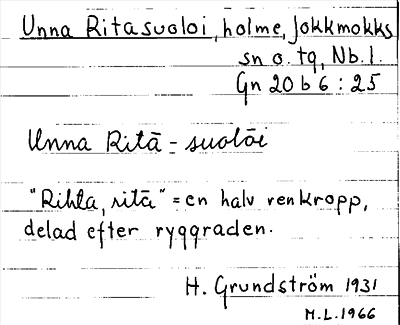 Unna Ritasuoloi, holme, Jokkmokks
sn o. tg, Nb. l.
Gn 20 b 6 : 25
Unna Ritā = suolōi
"Rihta, ritā" = en halv renkropp,
delad efter ryggraden.
H. Grundström 1931
M.L. 1966